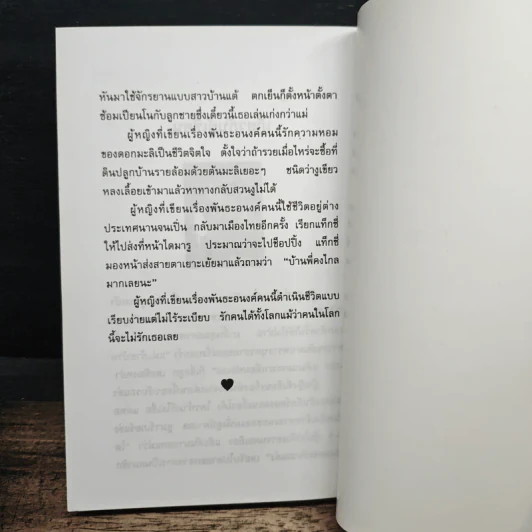 หันมาใช้จักรยานแบบสาวบ้านแต้ ตกเย็นก็ตั้งหน้าตั้งตา
ซ้อมเปียนโนกับลูกชายซึ่งเดี๋ยวนี้เธอเล่นเก่งกว่าแม่
ผู้หญิงที่เขียนเรื่องพันธะอนงค์คนนี้รักความหอม
ของดอกมะลิเป็นชีวิตจิตใจ ตั้งใจว่าถ้ารวยเมื่อไหร่จะซื้อที่
ดินปลูกบ้านรายล้อมด้วยต้นมะลิเยอะๆ ชนิดว่างูเขียว
หลงเลื้อยเข้ามาแล้วหาทางกลับสวนงูไม่ได้
ผู้หญิงที่เขียนเรื่องพันธะอนงค์คนนี้ใช้ชีวิตอยู่ต่าง
ประเทศนานจนเป๋น กลับมาเมืองไทยอีกครั้ง เรียกแท็กซี่
ให้ไปส่งที่หน้าไดมารู ประมาณว่าจะไปช็อปปิ้ง แท็กซี่
มองหน้าส่งสายตาเยาะเย้ยมาแล้วถามว่า "บ้านพี่คงไกล
มากเลยนะ"
ผู้หญิงที่เขียนเรื่องพันธะอนงค์คนนี้ดำเนินชีวิตแบบ
เรียบง่ายแต่ไม่ไร้ระเบียบ รักคนได้ทั้งโลกแม้ว่าคนในโลก
นี้จะไม่รักเธอเลย